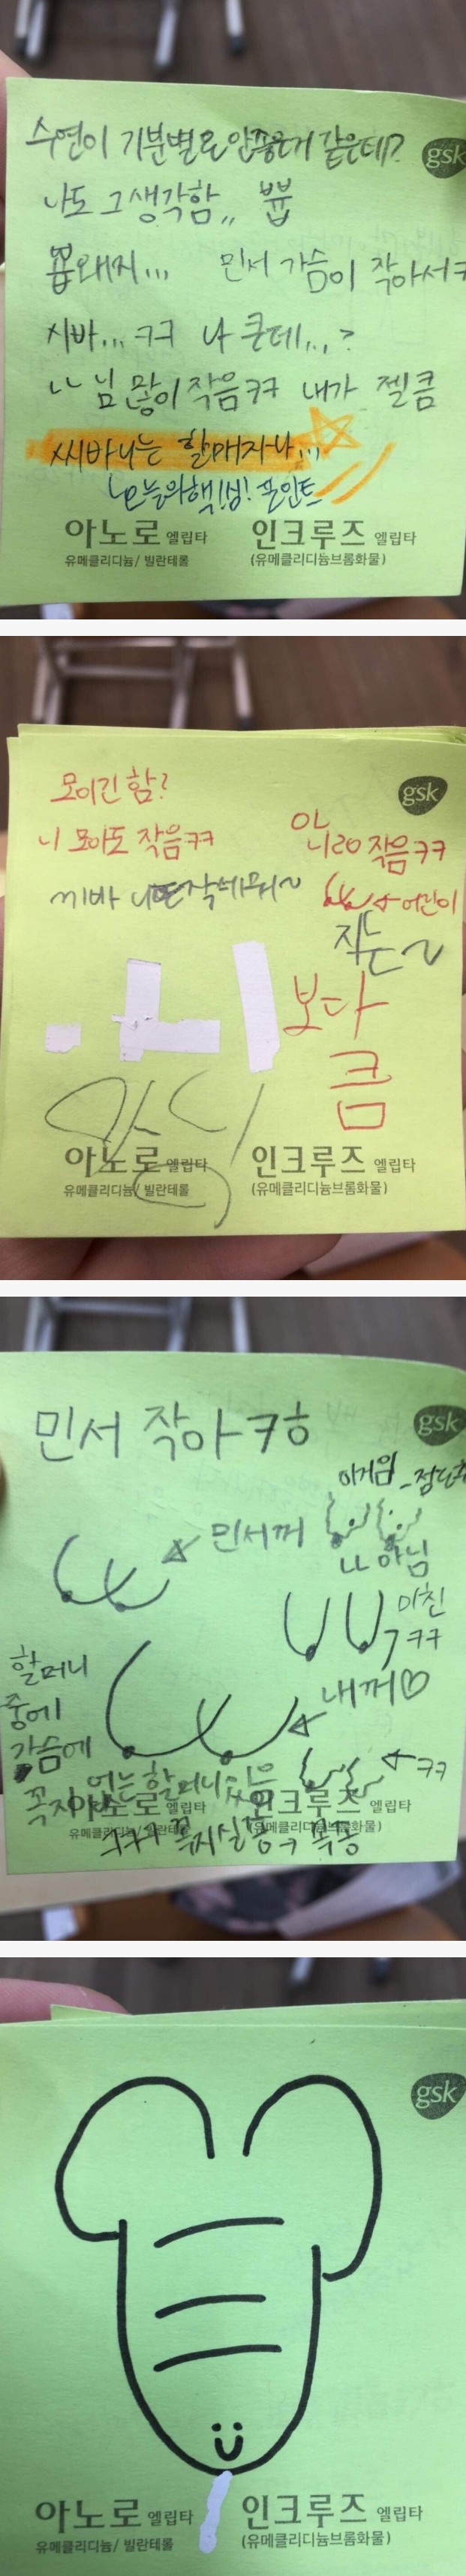 수연이 기분별로안좋은거 같은데?
gsk
나도 그생각함,, 쀼
뿁왜지... 민서 가슴이 작아서ㅋ
시바...ㅋㅋ 나 큰데...?
ㄴㄴ 님 많이 작음ㅋㅋ 내가 젤큼
씨바너는 할매자나...
오늘의핵!심! 포인트
아노로 엘립타 인크루즈 엘립타
유메클리디늄/ 빌란테롤 (유메클리디늄브롬화물)
gsk
모이긴함?
니 모아도 작음ㅋㅋ
작음ㅋㅋ
어린이
작는~
보다
큼
아노로 엘립타 인크루즈 엘립타
유메클리디늄/ 빌란테롤 (유메클리디늄브롬화물)
gsk
민서 작아ㅋㅎ
민서꺼
ㄴㄴ 아님
미친
ㅋㅋ
내꺼♡
할머니
중에
가슴에
ㅋㅋ
어느할머니
아노로 엘립타 인크루즈 엘립타
유메클리디늄/ 빌란테롤 (유메클리디늄브롬화물)
gsk
아노로 엘립타 인크루즈 엘립타
유메클리디늄/ 빌란테롤 (유메클리디늄브롬화물)